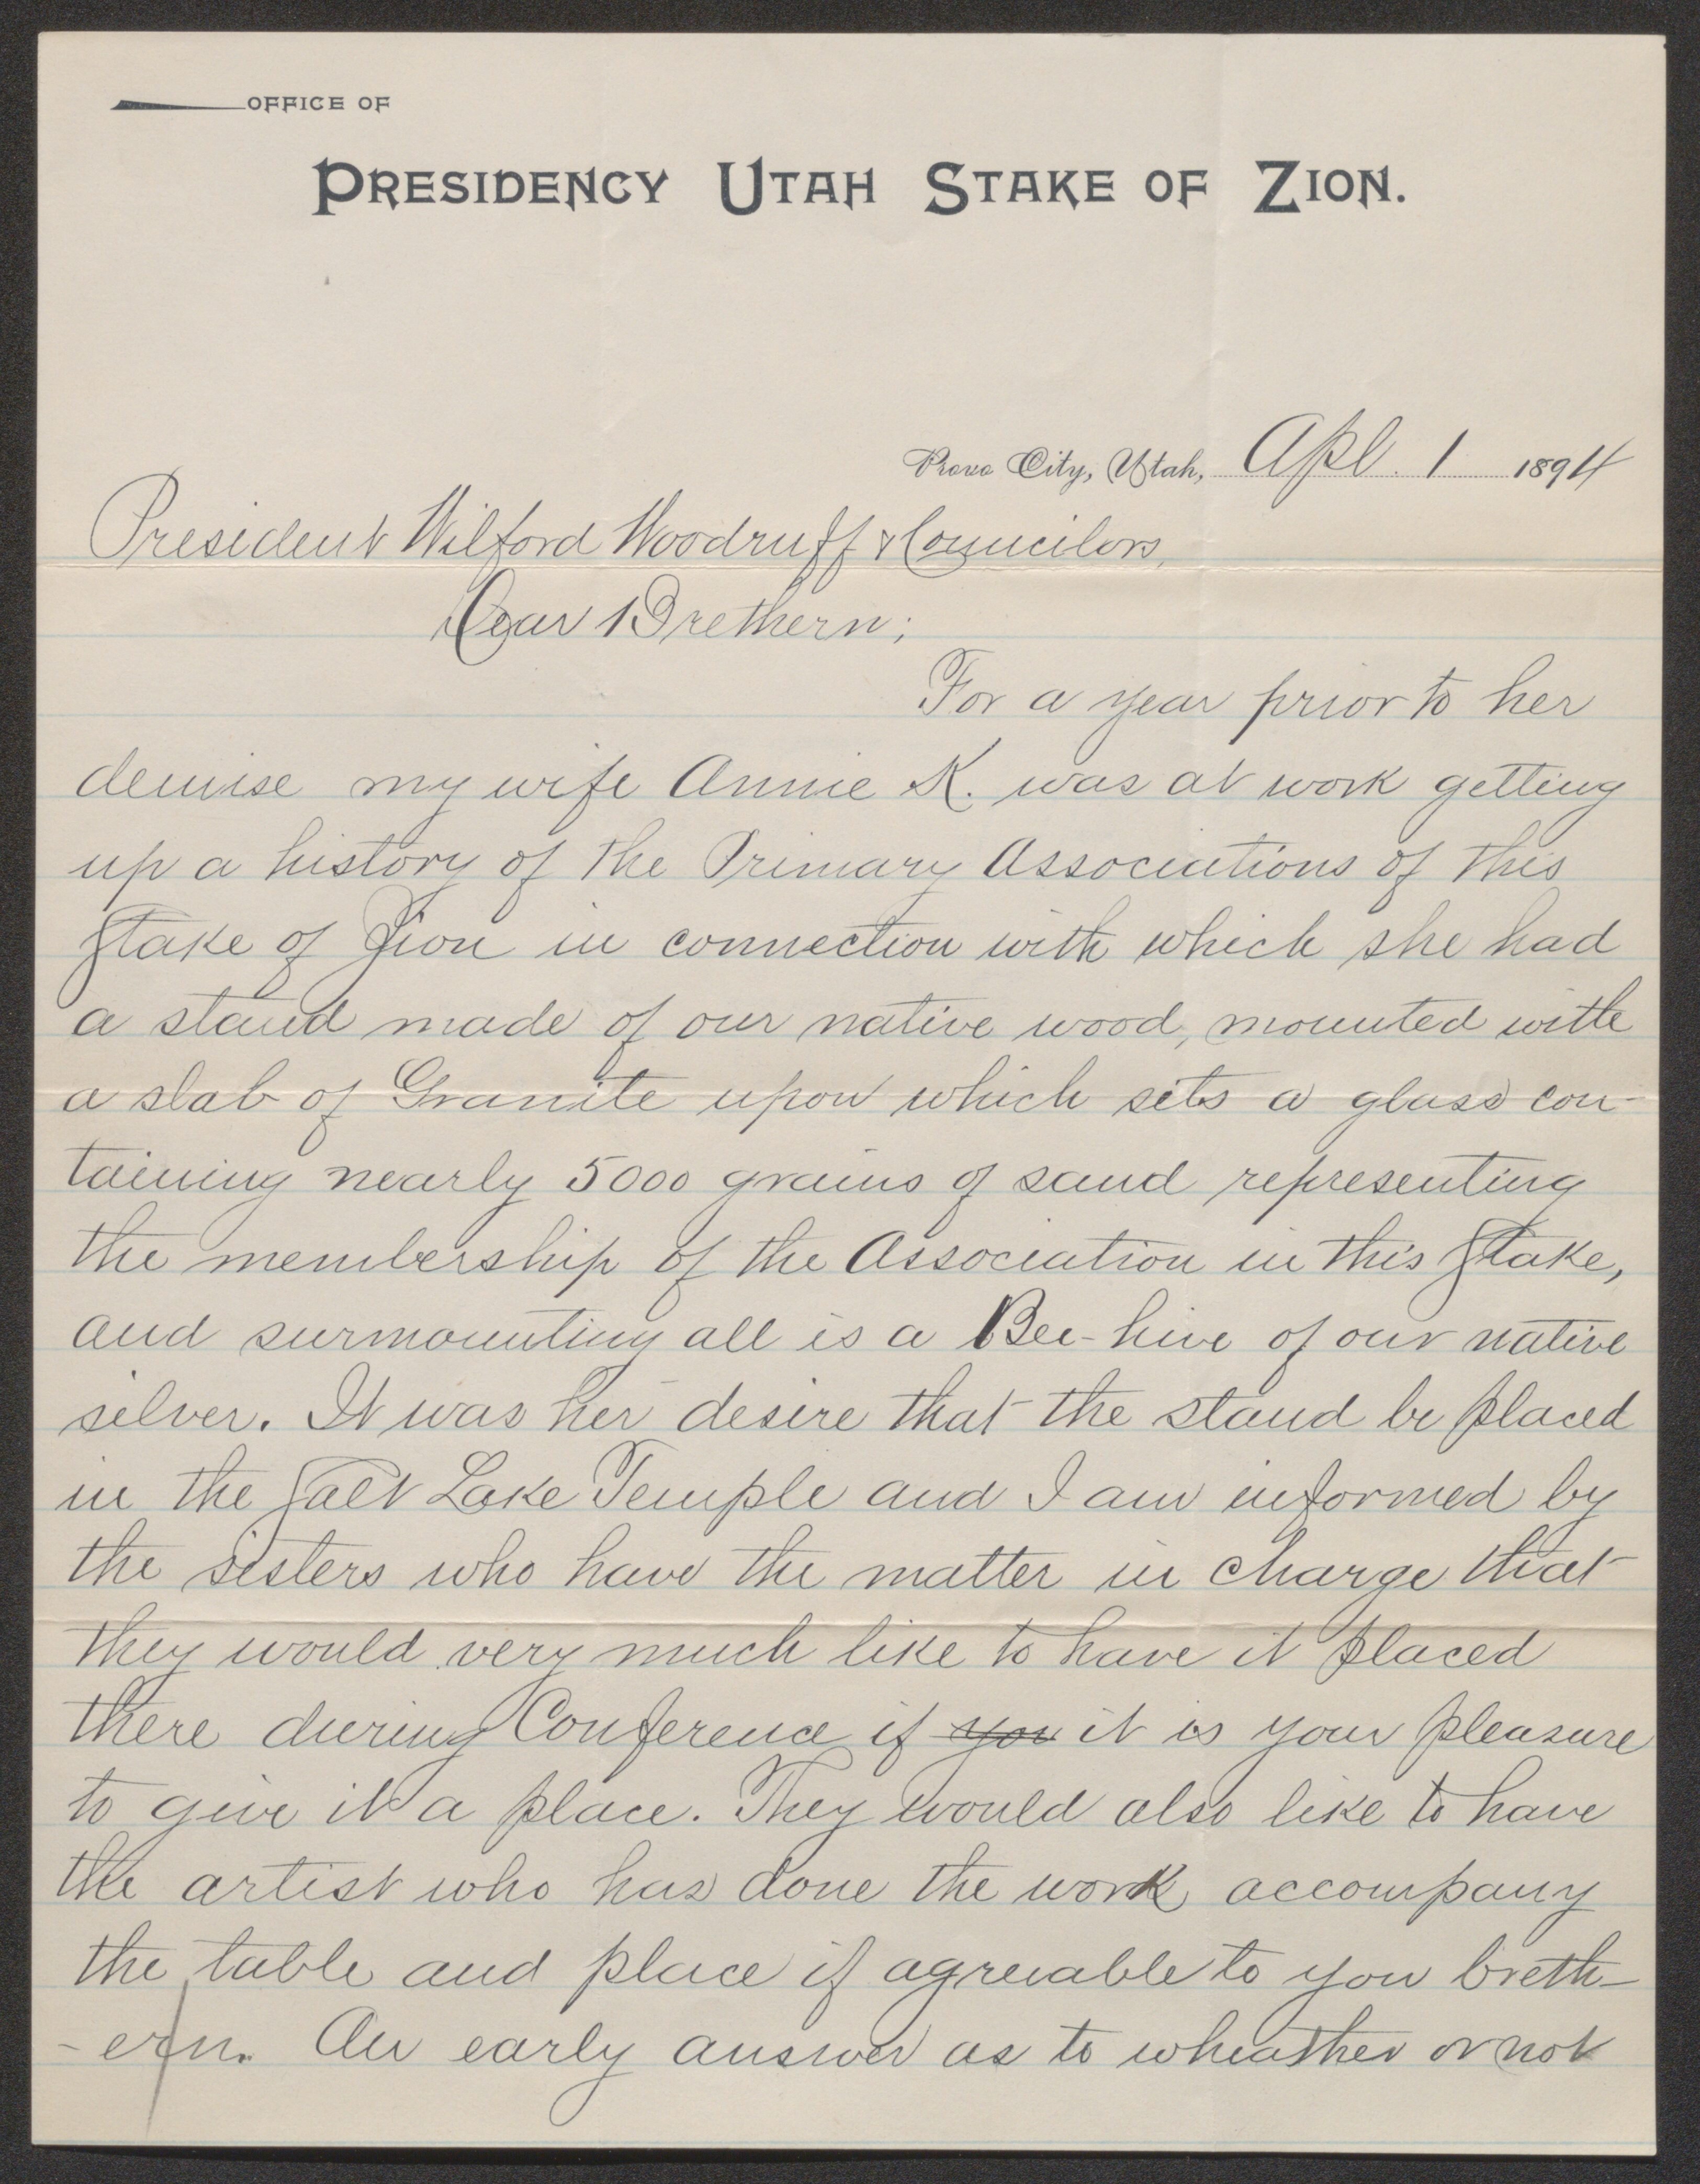 OFFICE OF
PRESIDENCY UTAH STAKE OF ZION.
Provo City, Utah, Apl. 1 1894
President Wilford Woodruff & Councilors,
Dear Brethern;
For a year prior to her
demise my wife Annie K. was at work getting
up a history of the Primary Associations of this
Stake of Zion in connection with which she had
a stand made of our native wood, mounted with
a slab of Granite upon which sets a glass con-
taining nearly 5000 grains of sand representing
the membership of the Association in this Stake,
and surmounting all is a Bee-hive of our native
silver. It was her desire that the stand be placed
in the Salt Lake Temple and I am informed by
the sisters who have the matter in charge that
they would very much like to have it placed
there during Conference if you it is your pleasure
to give it a place. They would also like to have
the artist who has done the work accompany
the table and place if agreuable to you breth-
-ern. An early answer as to wheather or not